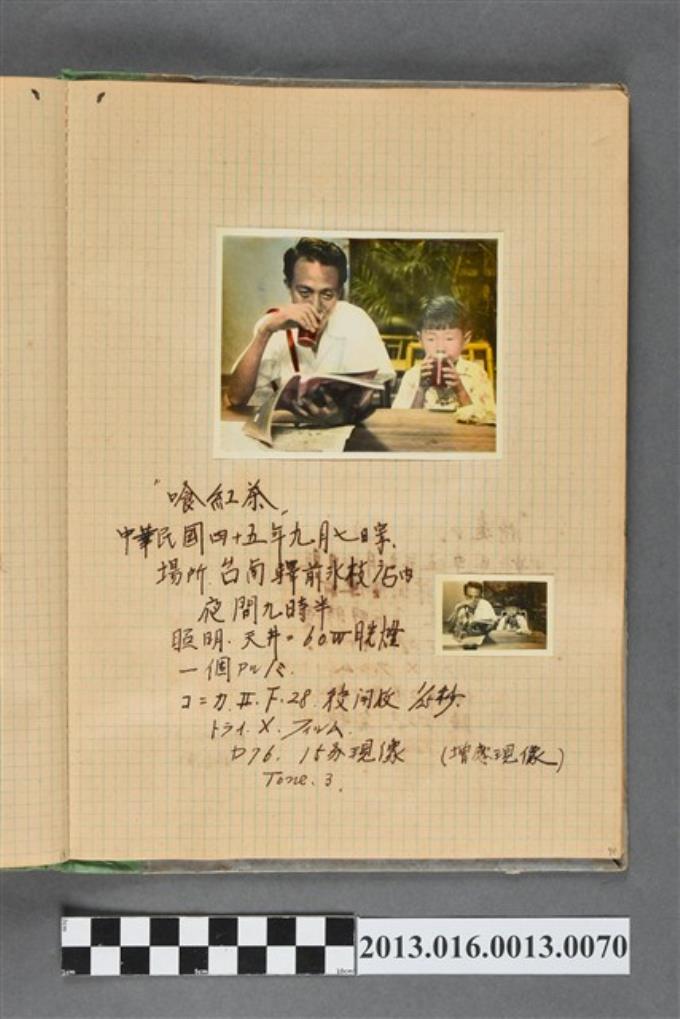 "喰紅茶"
中華民國四十五年九月七日寫、
場所 台南驛前氷枝店内
夜間九時半
照明、天井。60W 燈
一個アルミ、
コニカ、Ⅱ、F.28、開放 秒、
トライ、X、フィルム、
D76、15分現像 (增感現像)
Tone.3.
2013.016.0013.0070